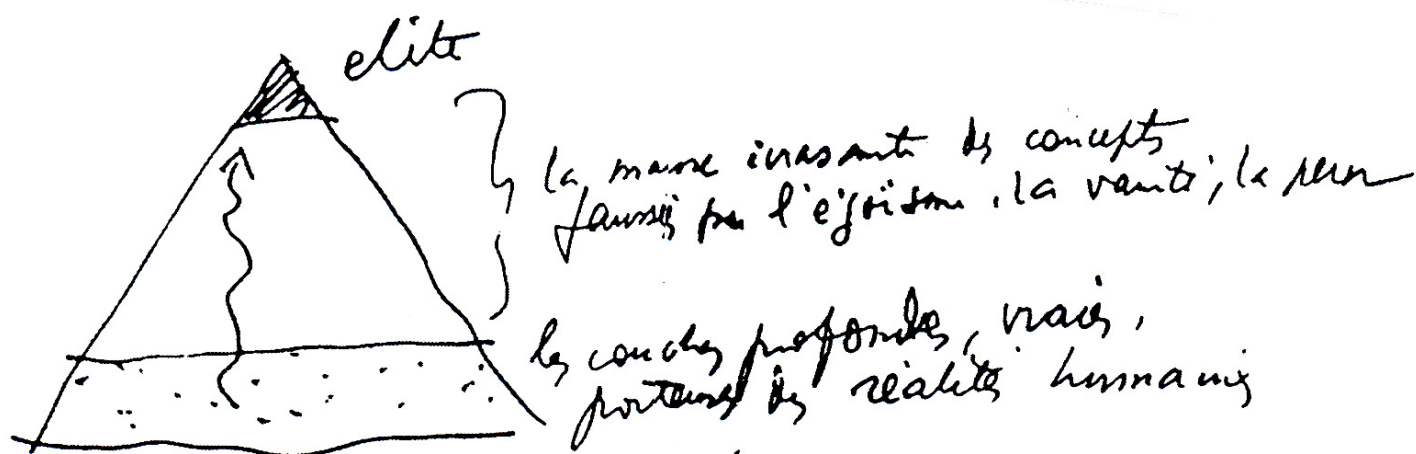 elite
la masse écrasante des concepts
faussés par l'égoïsme, la vanité, la peur
les couches profondes, vraies,
porteuses des réalités humaines